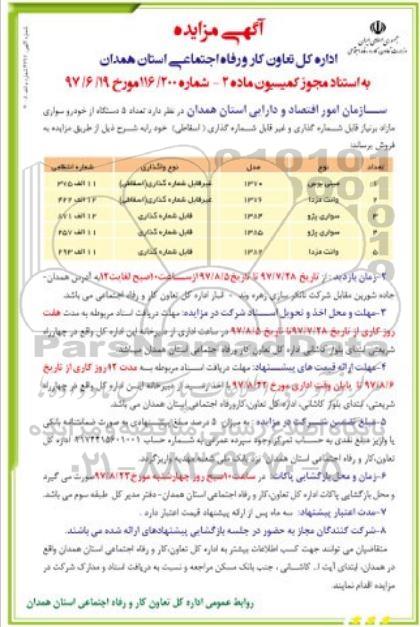 آگهی مزایده
جمهوری اسلامی ایران
وزارت تعاون، کار و رفاه اجتماعی
اداره کل تعاون کار ورفاه اجتماعی استان همدان
به استناد مجوز کمیسیون ماده ۲ - شماره ۱۱۶/۲۰۰ مورخ ۹۷/۶/۱۹
سازمان امور اقتصاد و دارایی استان همدان در نظر دارد تعداد ۵ دستگاه از خودرو سواری
مازاد برنیاز قابل شماره گذاری و غیر قابل شماره گذاری ( اسقاطی) خود رابه شرح ذیل از طریق مزایده به
فروش برساند:
تعداد نوع مدل نوع واگذاری شماره انتظامی
۱ مینی بوس ۱۳۷۰ غیرقابل شماره گذاری(اسقاطی) ۱۱ الف ۳۷۵
۲ وانت مزدا ۱۳۷۶ غیرقابل شماره گذاری(اسقاطی) ۱۲ الف ۴۲۲
۳ سواری پژو ۱۳۸۴ قابل شماره گذاری ۱۲ الف ۸۷۱
۴ سواری پژو ۱۳۸۵ قابل شماره گذاری ۱۱ الف ۲۵۷
۵ وانت مزدا ۱۳۸۲ قابل شماره گذاری ۱۱ الف ۲۹۳
۲-زمان بازدید : از تاریخ ۹۷/۷/۲۸ تا تاریخ ۹۷/۸/۵ ازساعت ۱۰صبح لغایت ۱۲به آدرس همدان-
جاده شورین مقابل شرکت تانکر سازی زهره وند - انبار اداره کل تعاون کار و رفاه اجتماعی می باشد.
۳-مهلت و محل اخذ و تحویل اسناد شرکت در مزایده: مهلت دریافت اسناد مربوطه به مدت هفت
روز کاری از تاریخ ۹۷/۷/۲۸ تا تاریخ ۹۷/۸/۵ در ساعت اداری از دبیرخانه این اداره کل واقع در چهارراه
شریعتی ابتدای بلوار کاشانی اداره کل تعاون کار ورفاه اجتماعی استان همدان میباشد.
۴-مهلت ارائه قیمت های پیشنهاد: مهلت دریافت اسناد مربوطه به مدت ۱۲روز کاری از تاریخ
۹۷/۸/۶ تا پایان وقت اداری مورخ ۹۷/۸/۲۲ با اخذ رسید از دبیرخانه این اداره کل واقع در چهارراه
شریعتی، ابتدای بلوار کاشانی، اداره کل تعاون،کارورفاه اجتماعی استان همدان می باشد.
۵-مبلغ تضمین شرکت در مزایده : به میزان ۵ درصد مبلغ پیشنهادی و به صورت ضمانتنامه بانکی
یا واریز مبلغ نقدی به حساب تمرکز وجوه سپرده عمرانی به شماره حساب ۲۱۷۴۴۱۵۶۰۱۰۰۱ اداره کل
تعاون،کار و رفاه اجتماعی استان همدان نزد بانک ملی شعبه مهدیه واریزگردد.
۶-زمان و محل بازگشایی پاکات: در ساعت ۱۰صبح روز چهارشنبه مورخ ۹۷/۸/۲۳ صورت می گیرد
و محل بازگشایی پاکات اداره کل تعاون،کار و رفاه اجتماعی استان همدان-دفتر مدیر کل طبقه سوم می باشد.
۷-مدت اعتبار پیشنهاد: سه ماه پس از ارائه پیشنهاد قیمت اعتبار دارد .
۸-شرکت کنندگان مجاز به حضور در جلسه بازگشایی پیشنهادهای ارائه شده می باشند.
متقاضیان می توانند جهت کسب اطلاعات بیشتر به اداره کل تعاون،کار و رفاه اجتماعی استان همدان واقع
در همدان، ابتدای آیت ا.. کاشانی ، جنب بانک مسکن مراجعه و نسبت به دریافت اسناد و مدارک شرکت در
مزایده اقدام نمایند.
روابط عمومی اداره کل تعاون کار و رفاه اجتماعی استان همدان